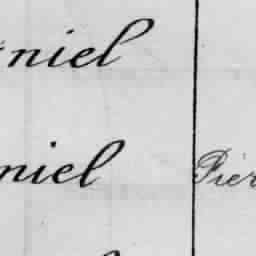 niel
niel Pier